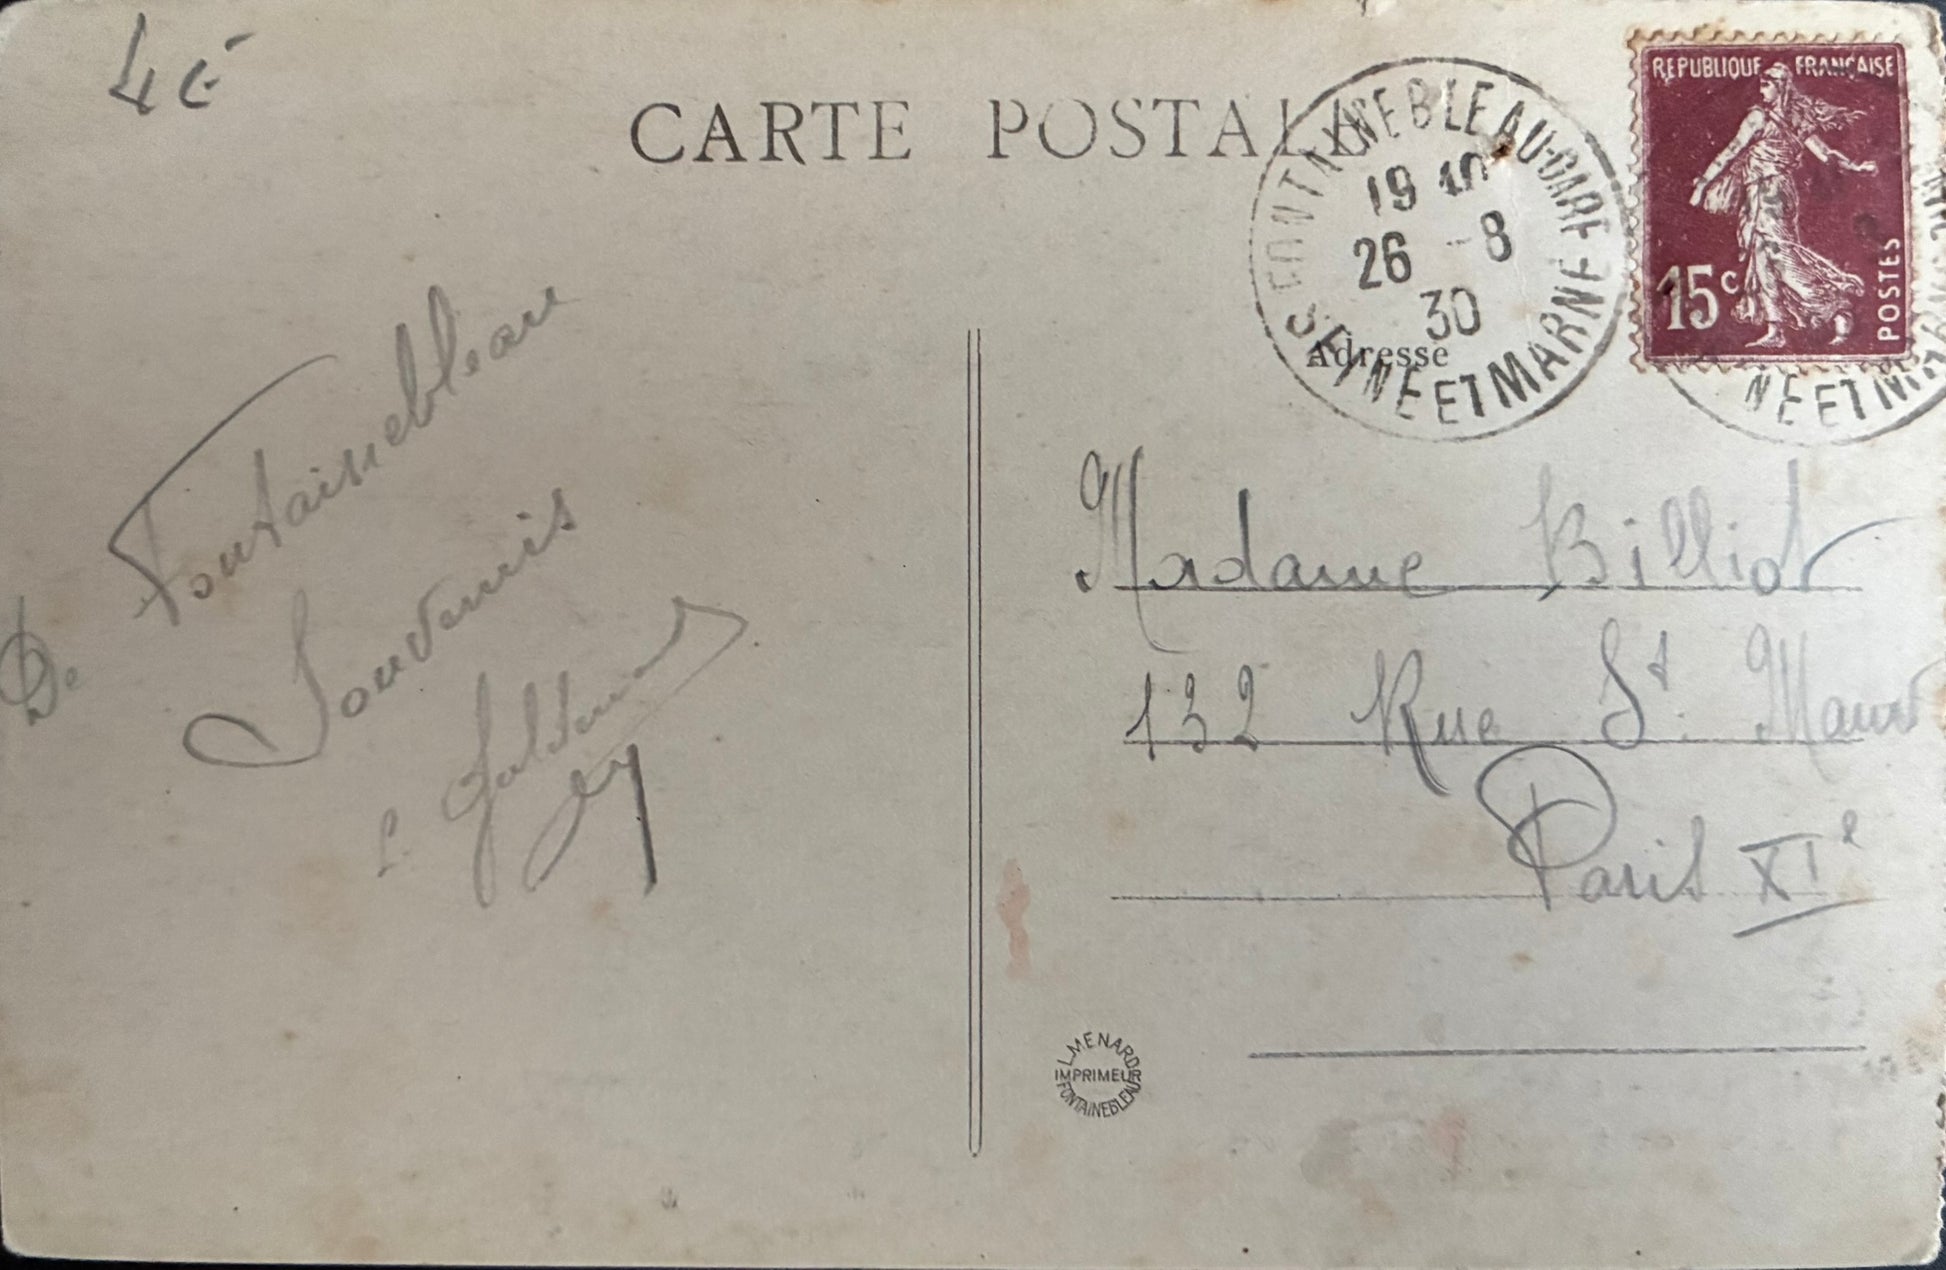 4 €
CARTE POSTALE
FONTAINEBLEAU-GARE
19 40
26 - 8
30
SEINE ET MARNE
REPUBLIQUE FRANÇAISE
15c
POSTES
NE ET MA
Adresse
De Fontainebleau
Souvenirs
Madame Billiot
132 Rue St. Maur
Paris XIe
L. MENARD
IMPRIMEUR
FONTAINEBLEAU